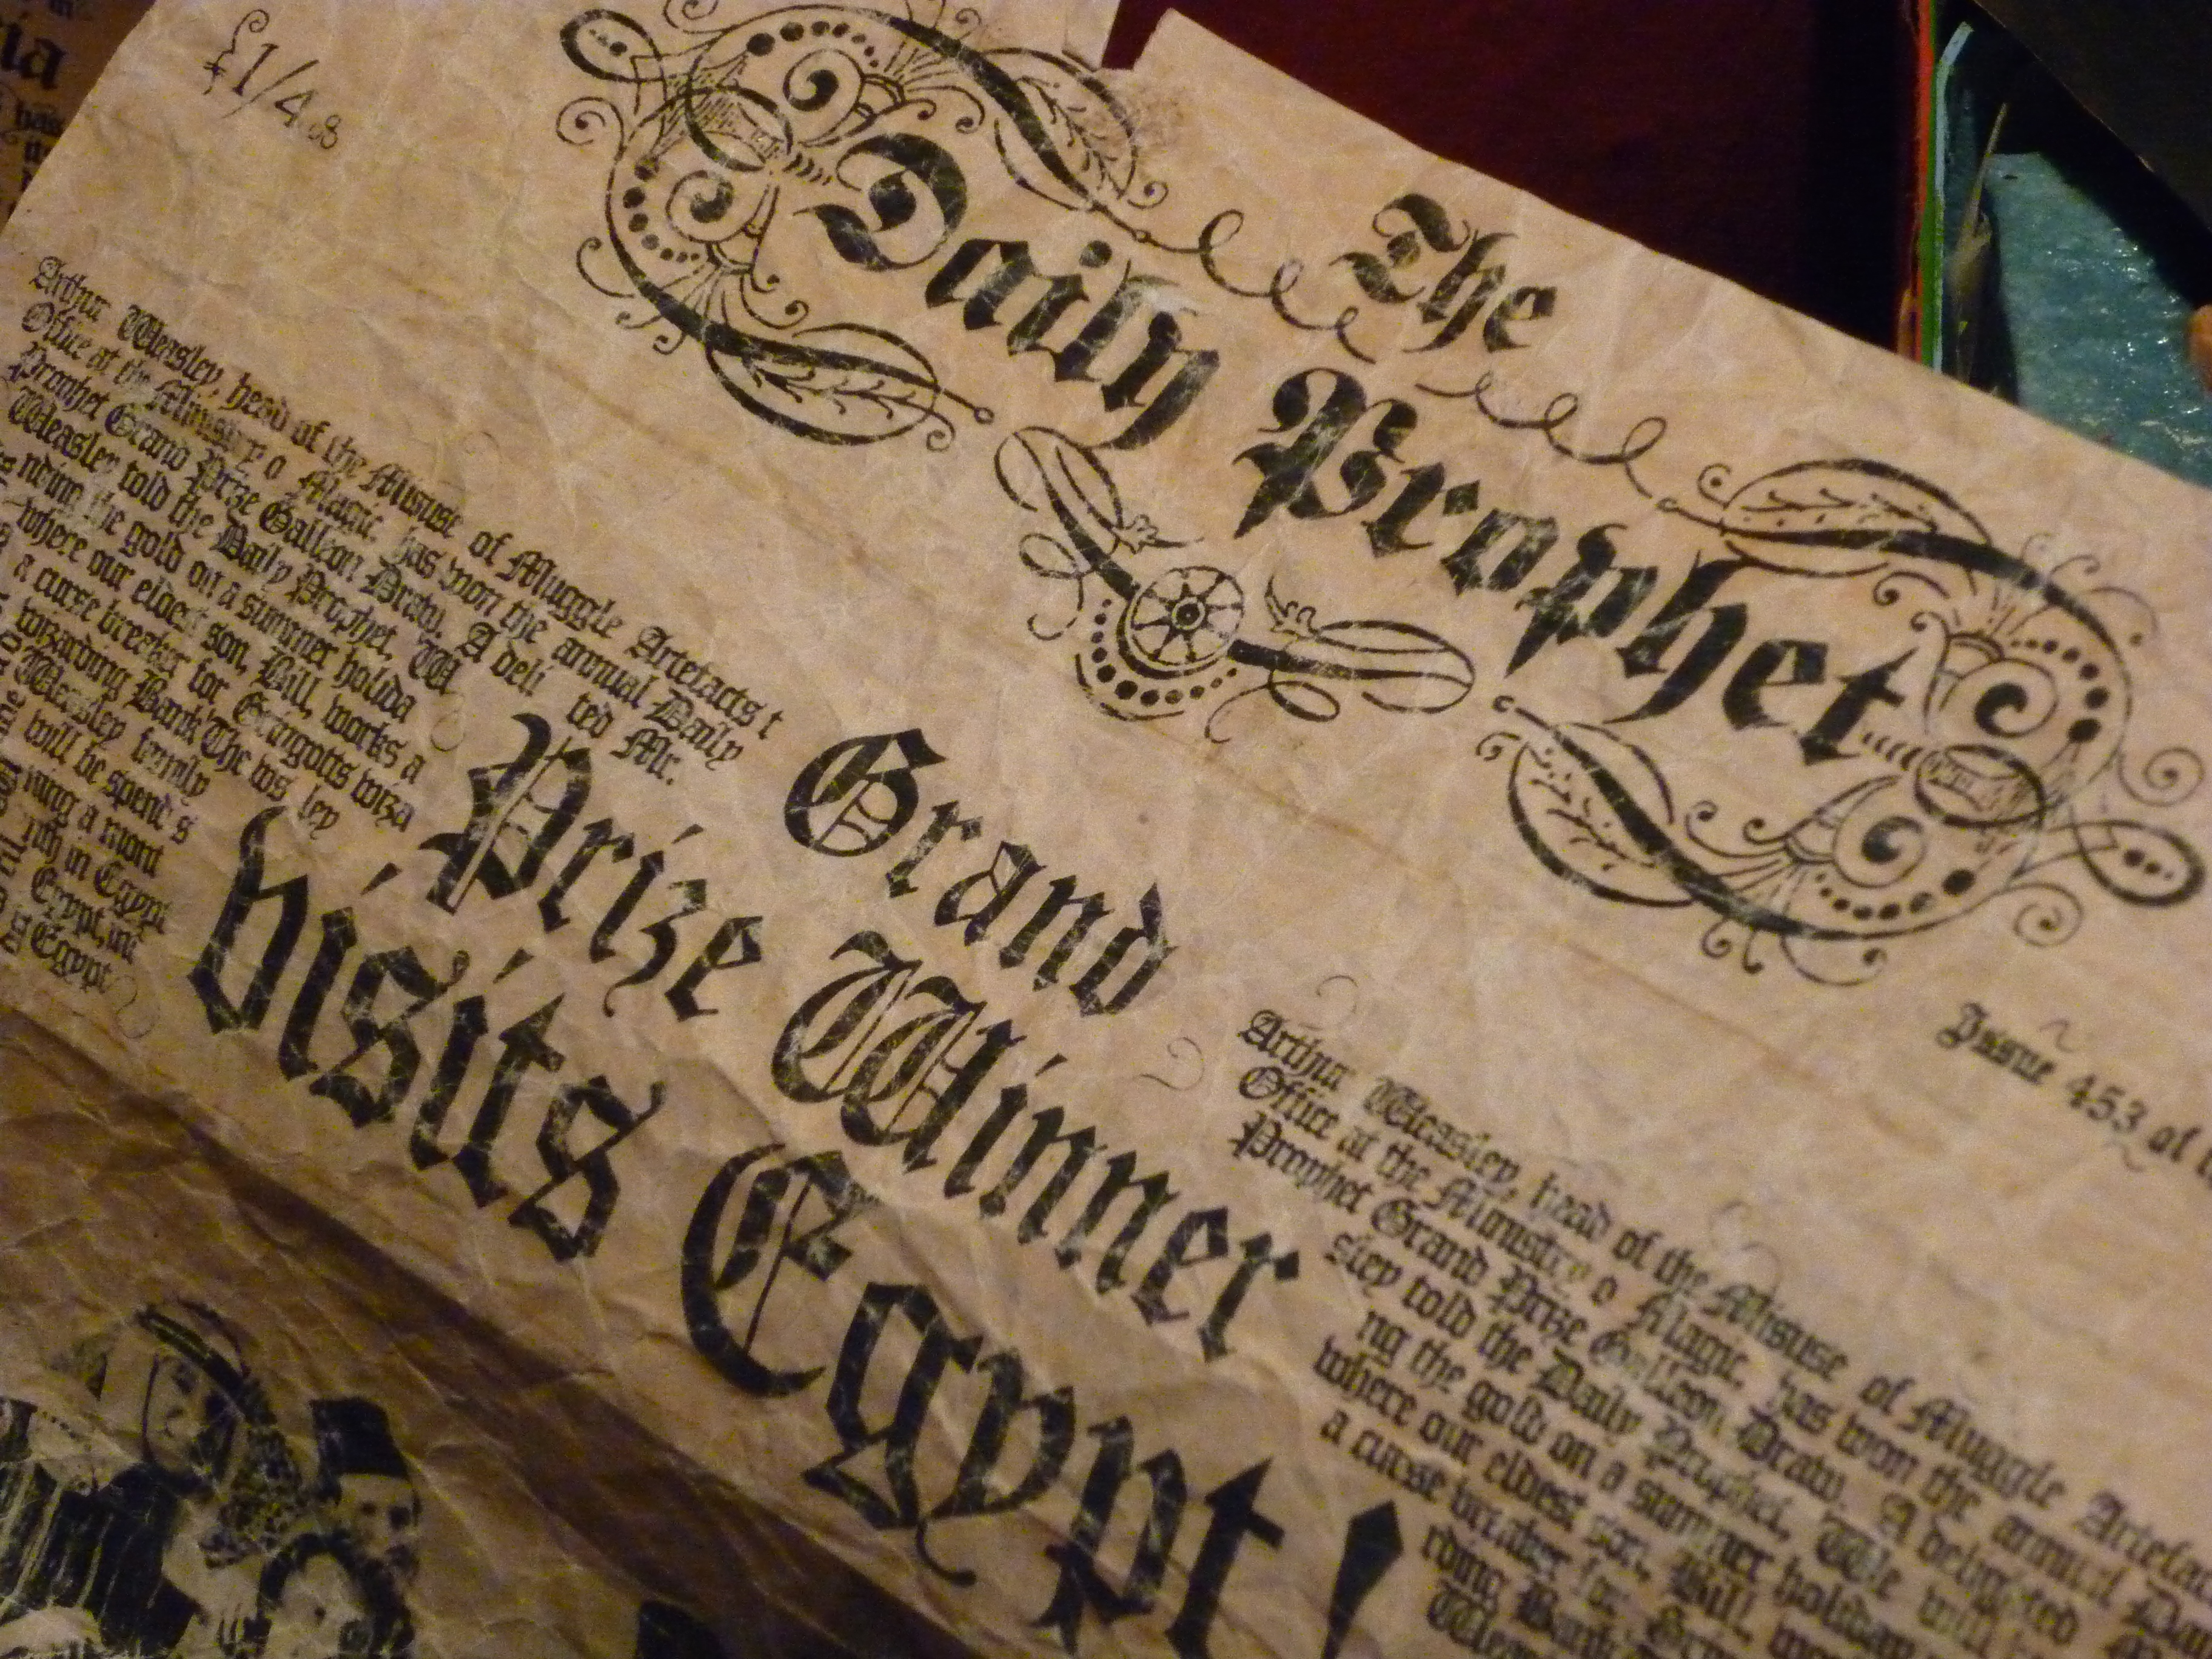 £1/4
The
Daily Prophet
Issue 453 of
Arthur Weasley, head of the Misuse of Muggle Artefacts t
Office at the Ministry o Magic, has won the annual Daily
Prophet Grand Prize Galleon Draw. A deli ted Mr.
Weasley told the Daily Prophet, W
nding the gold on a summer holida
where our eldest son, Bill, works a
a curse breaker for Gringotts wiza
wizarding Bank The ws ley
Weasley family
will be spend s
ning a mont
nth in Egypt
Egypt, ini
Egypt
Grand
Prize Winner
visits Egypt!
Arthur Weasley, head of the Misuse of Muggle Artefac
Office at the Ministry o Magic, has won the annual Dai
Prophet Grand Prize Galleon Draw. A delighted
sley told the Daily Prophet, We will
ng the gold on a summer holiday
where our eldest son, Bill,
a curse breaker for
rding Bank